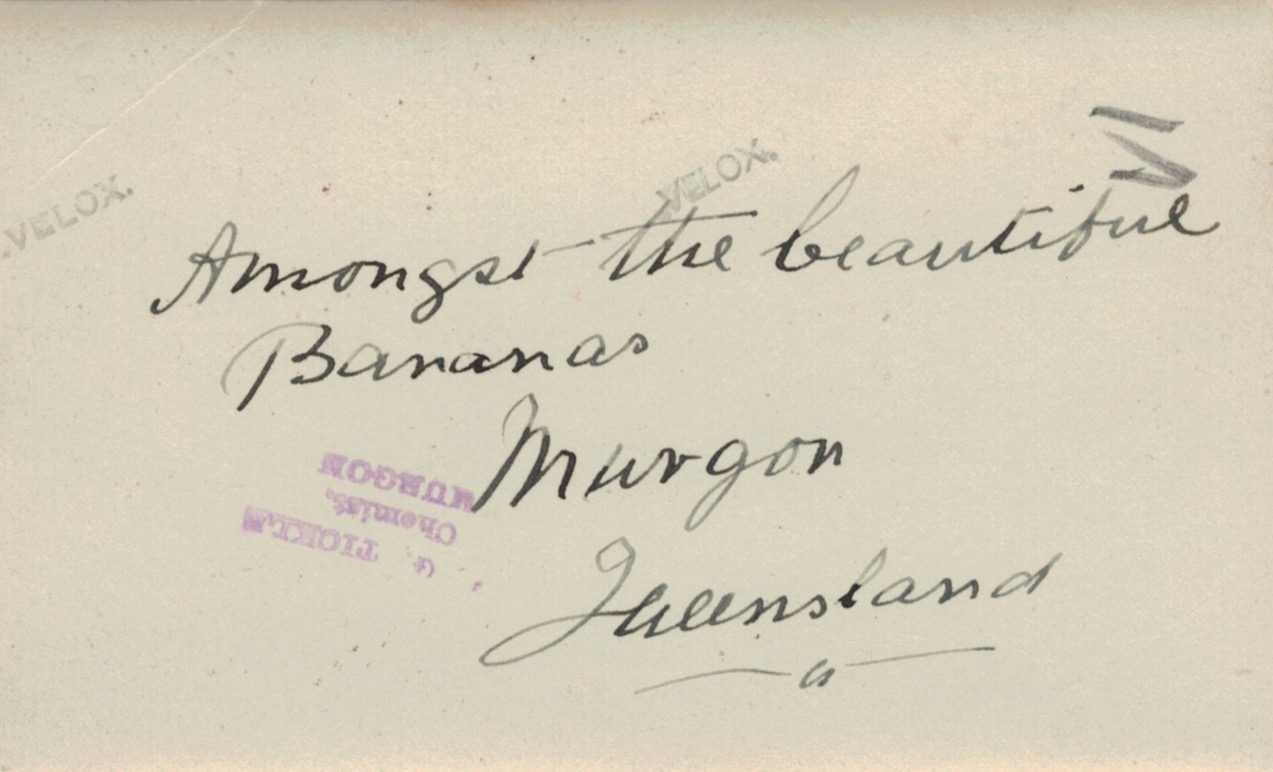 VELOX.
VELOX.
Amongst the beautiful
Bananas
Murgon
Queensland
TICKLE
Chemist,
MURGON